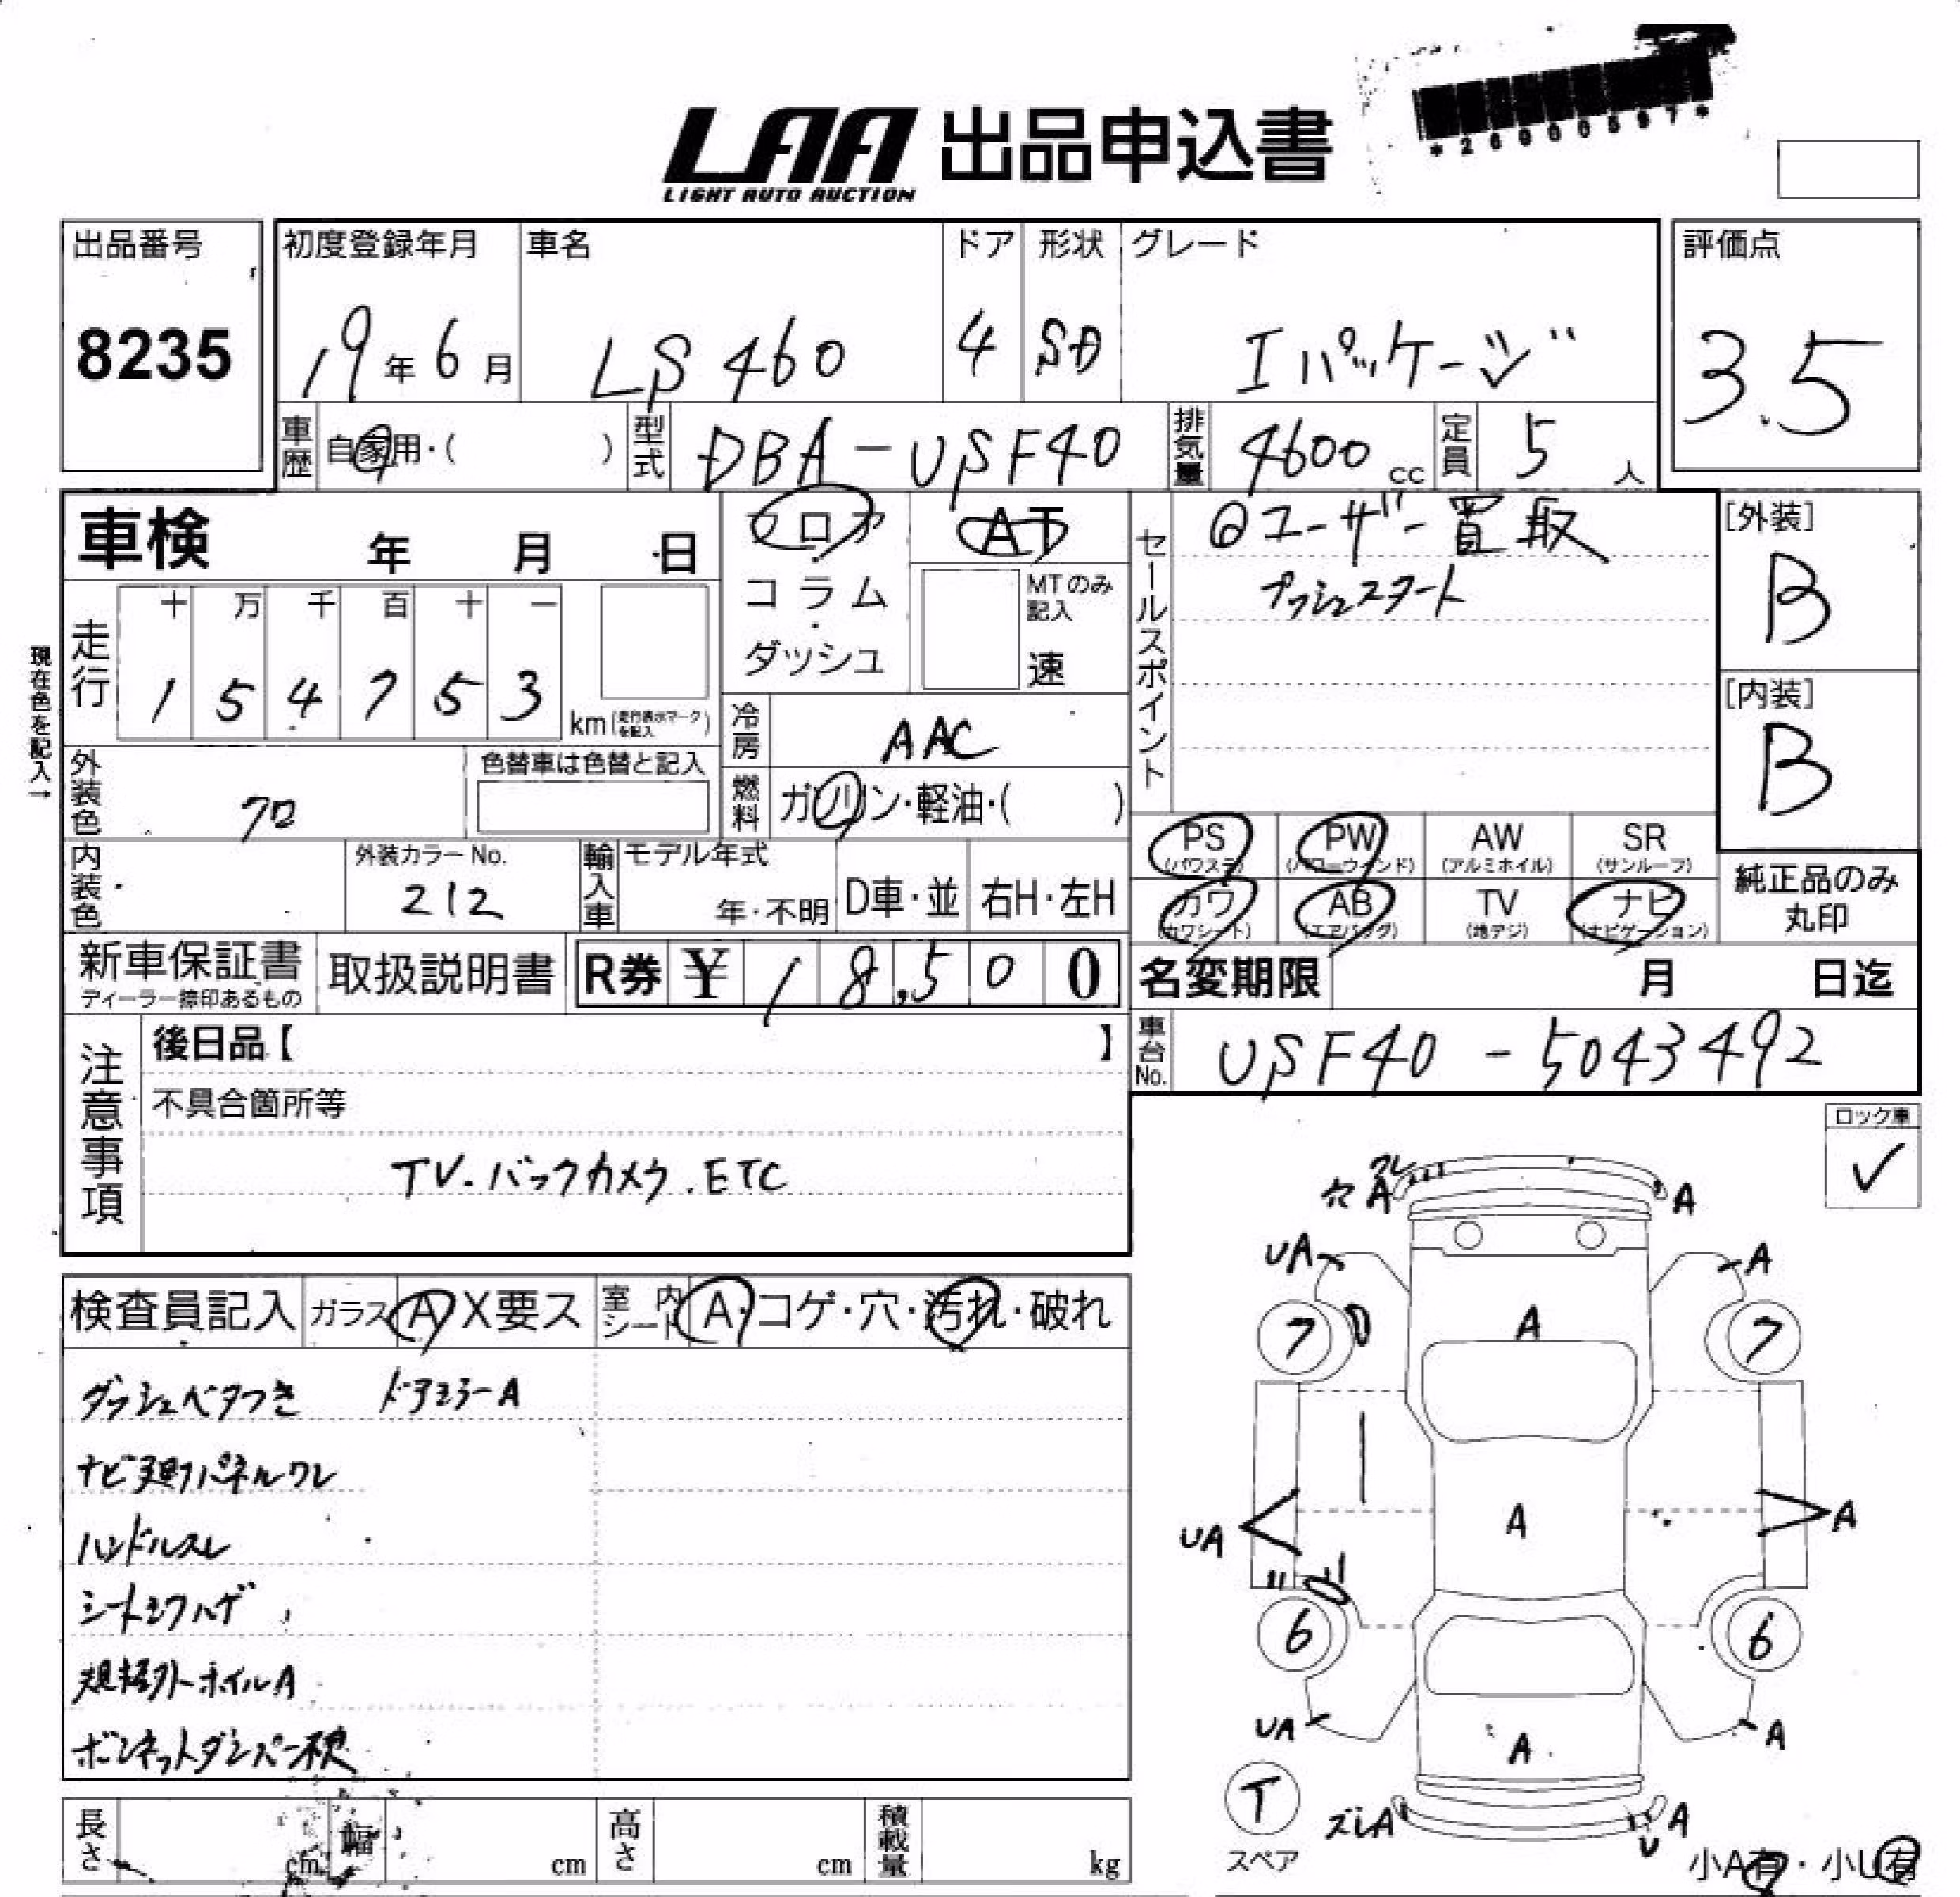 LAA 出品申込書
LIGHT AUTO AUCTION
*26000597*
出品番号
8235
初度登録年月
19年6月
車名
LS460
ドア
4
形状
SD
グレード
Iパッケージ
評価点
3.5
車歴 自家用・( )
型式 DBA-USF40
排気量 4600cc
定員 5人
車検 年 月 日
フロア
コラム
・
ダッシュ
AT
MTのみ記入
速
現在色を記入→
走行
十 万 千 百 十 一
1 5 4 7 5 3
km(走行表示マークを記入)
冷房 AAC
外装色 クロ
色替車は色替と記入
燃料 ガソリン・軽油・( )
セールスポイント
◎ユーザー買取
プッシュスタート
[外装]
B
[内装]
B
PS (パワステ)
PW (パワーウインド)
AW (アルミホイル)
SR (サンルーフ)
カワ (カワシート)
AB (エアバッグ)
TV (地デジ)
ナビ (ナビゲーション)
純正品のみ
丸印
内装色
外装カラーNo.
212
輸入車
モデル年式
年・不明
D車・並
右H・左H
新車保証書
ディーラー捺印あるもの
取扱説明書
R券 ¥18,500
名変期限 月 日迄
車台No. USF40-5043492
注意事項
後日品【 】
不具合箇所等
TV.バックカメラ.ETC
ロック車
✓
検査員記入
ガラス A・X要ス
室内シート A・コゲ・穴・汚れ・破れ
ダッシュベタつき ドアミラーA
ナビ廻りパネルワレ
ハンドルスレ
シートシワハゲ
規格外ホイルA
ボンネットダンパー不良
長さ cm
幅 cm
高さ cm
積載量 kg
ワレ
穴 A A
UA A
7 A 7
UA A A
6 6
UA A A
T
スペア
ズレA A
U
小A有・小U有